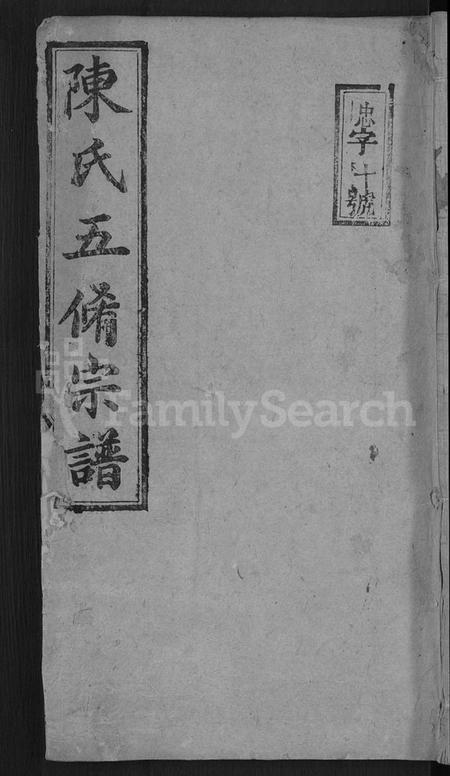 陳氏五脩宗譜
忠字十號
FamilySearch